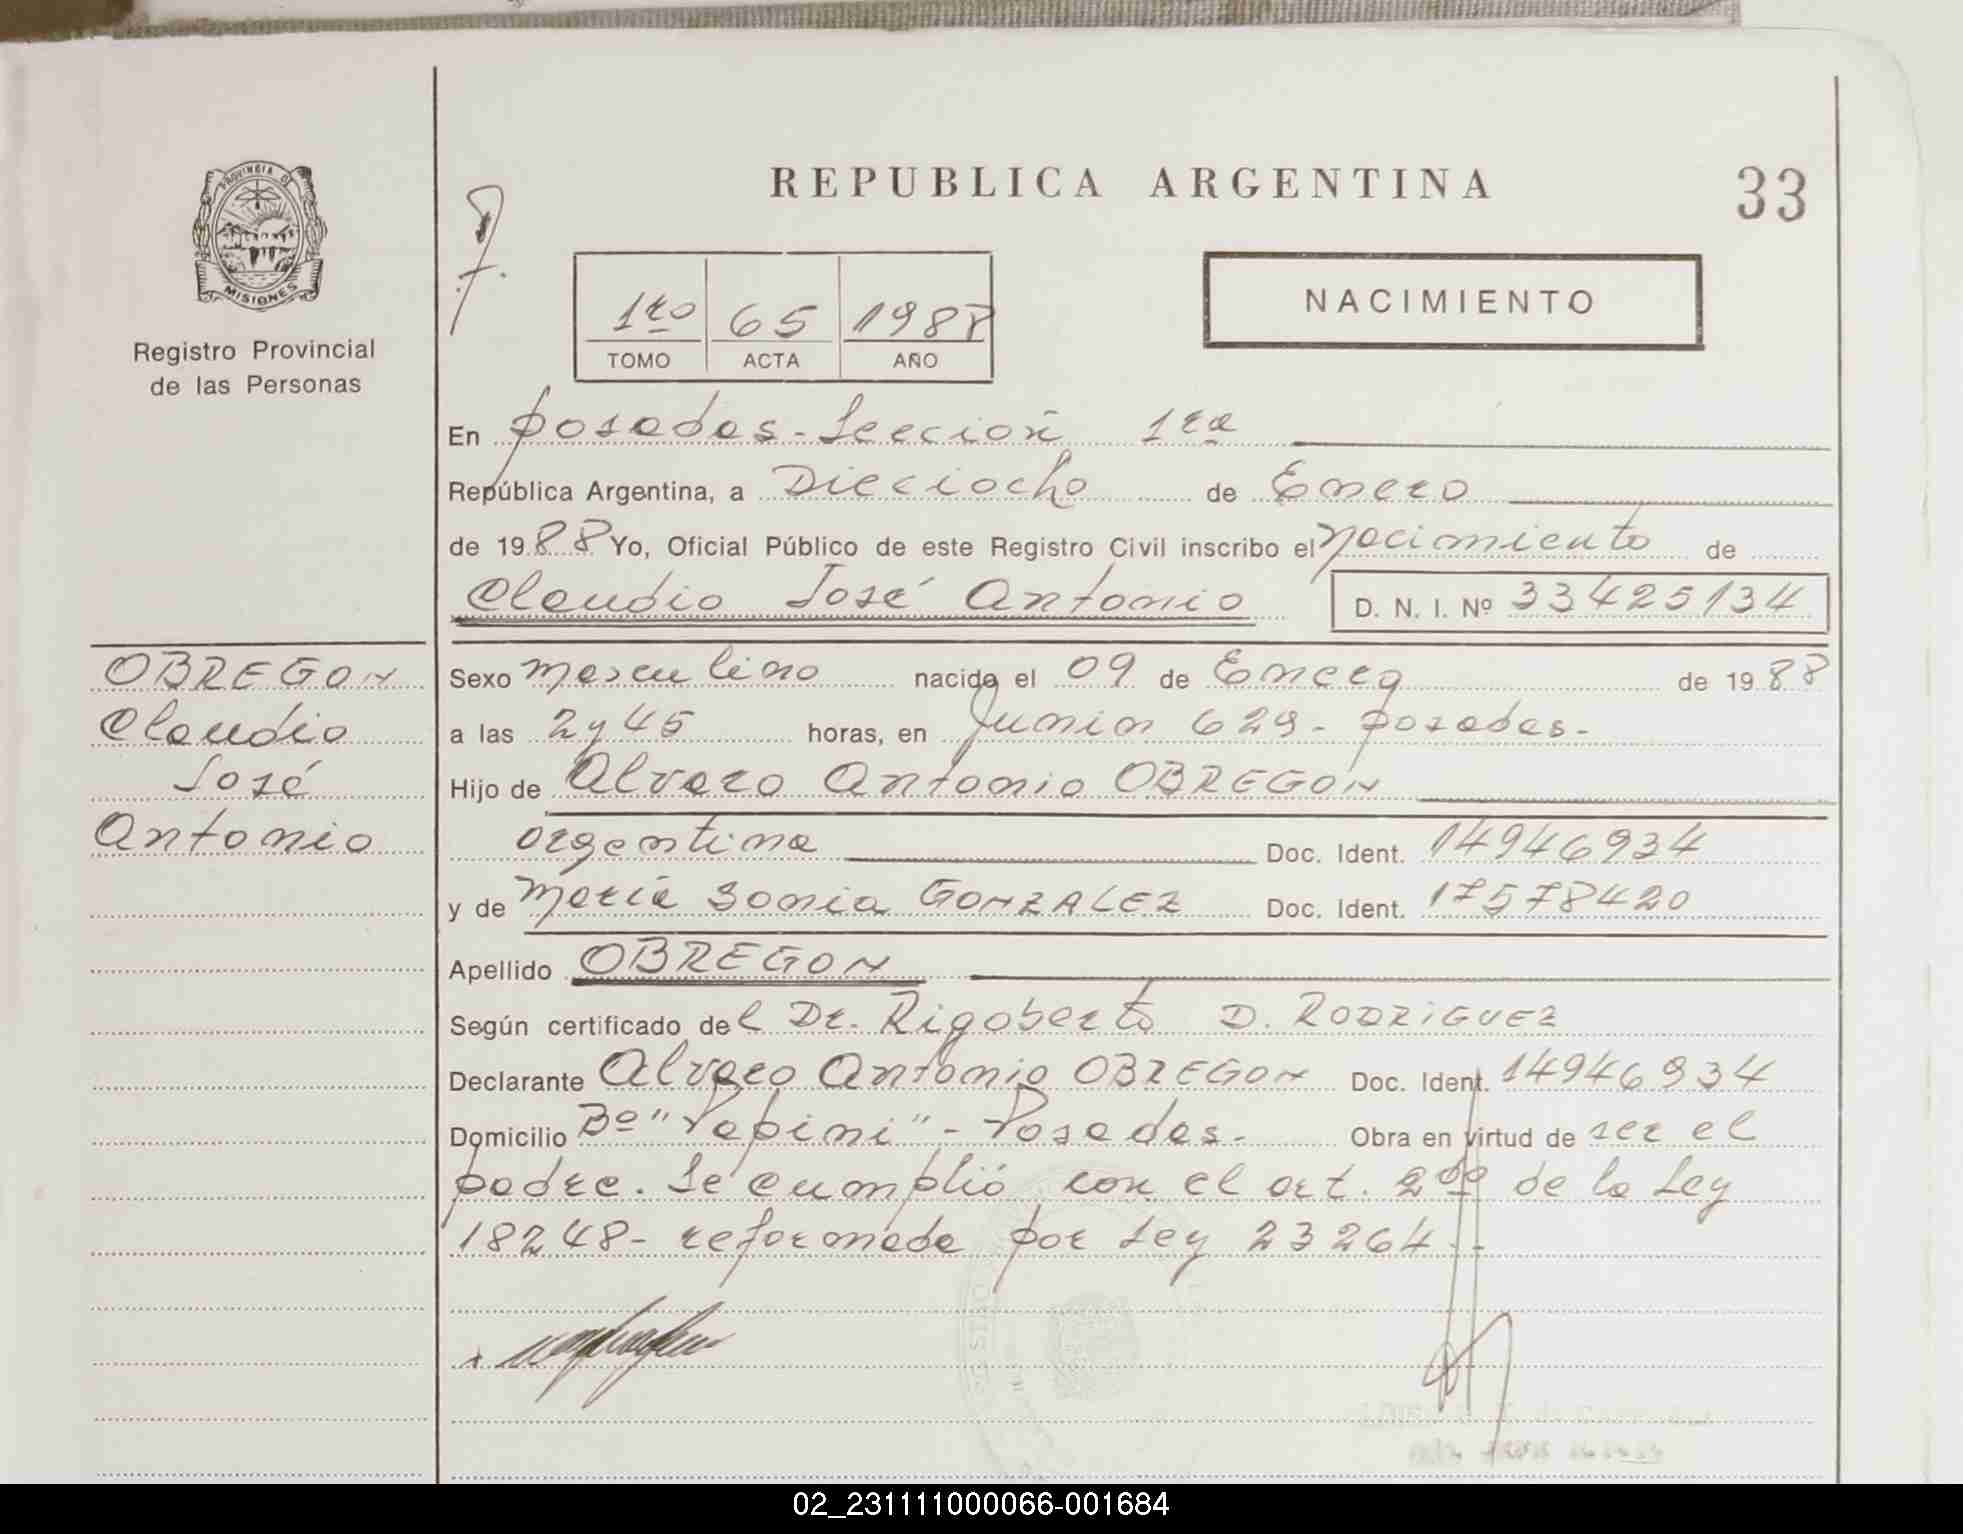 REPUBLICA ARGENTINA
33
PROVINCIA DE
MISIONES
Registro Provincial
de las Personas
1ro 65 1988
TOMO ACTA AÑO
NACIMIENTO
En Posadas - Sección 1ra
República Argentina, a Dieciocho de Enero
de 1988 Yo, Oficial Público de este Registro Civil inscribo el Nacimiento de
Claudio José Antonio D. N. I. Nº 33425134
OBREGON
Claudio
José
Antonio
Sexo Masculino nacido el 09 de Enero de 1988
a las 2 y 45 horas, en Junin 629 - Posadas.-
Hijo de Alvaro Antonio OBREGON
argentina Doc. Ident. 14946934
y de María Sonia GONZALEZ Doc. Ident. 17578420
Apellido OBREGON
Según certificado del Dr. Rigoberto D. RODRIGUEZ
Declarante Alvaro Antonio OBREGON Doc. Ident. 14946934
Domicilio Bº "Papini" - Posadas. Obra en virtud de ser el
padre. Se cumplió con el art. 2do de la Ley
18248 - reformada por Ley 23264.-
02_231111000066-001684